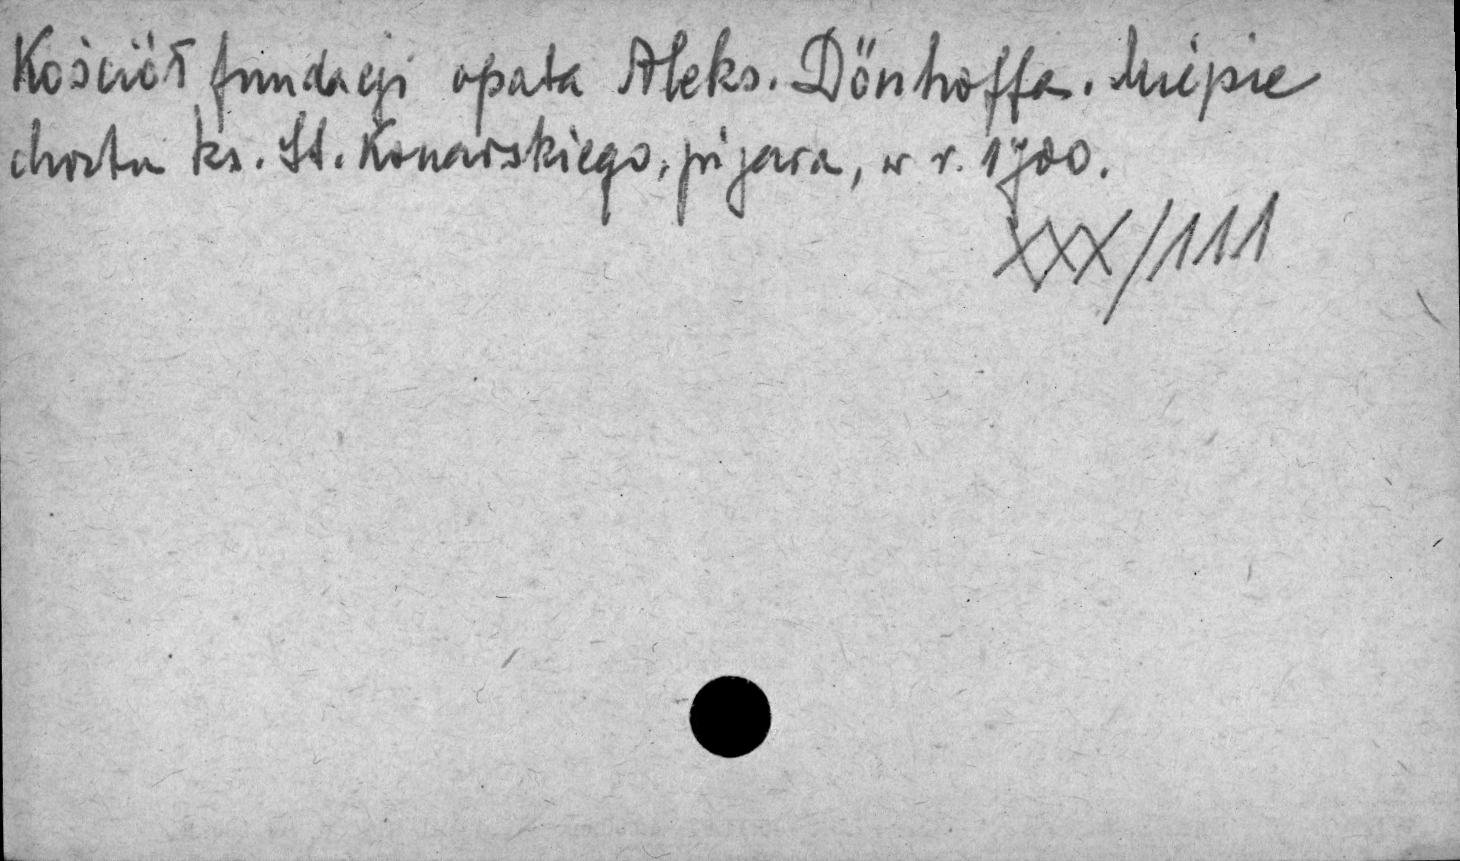 Kościół fundacji opata Aleks. Dönhoffa. Miejsce
chrztu ks. St. Konarskiego, pijara, w r. 1700.
XXX/111